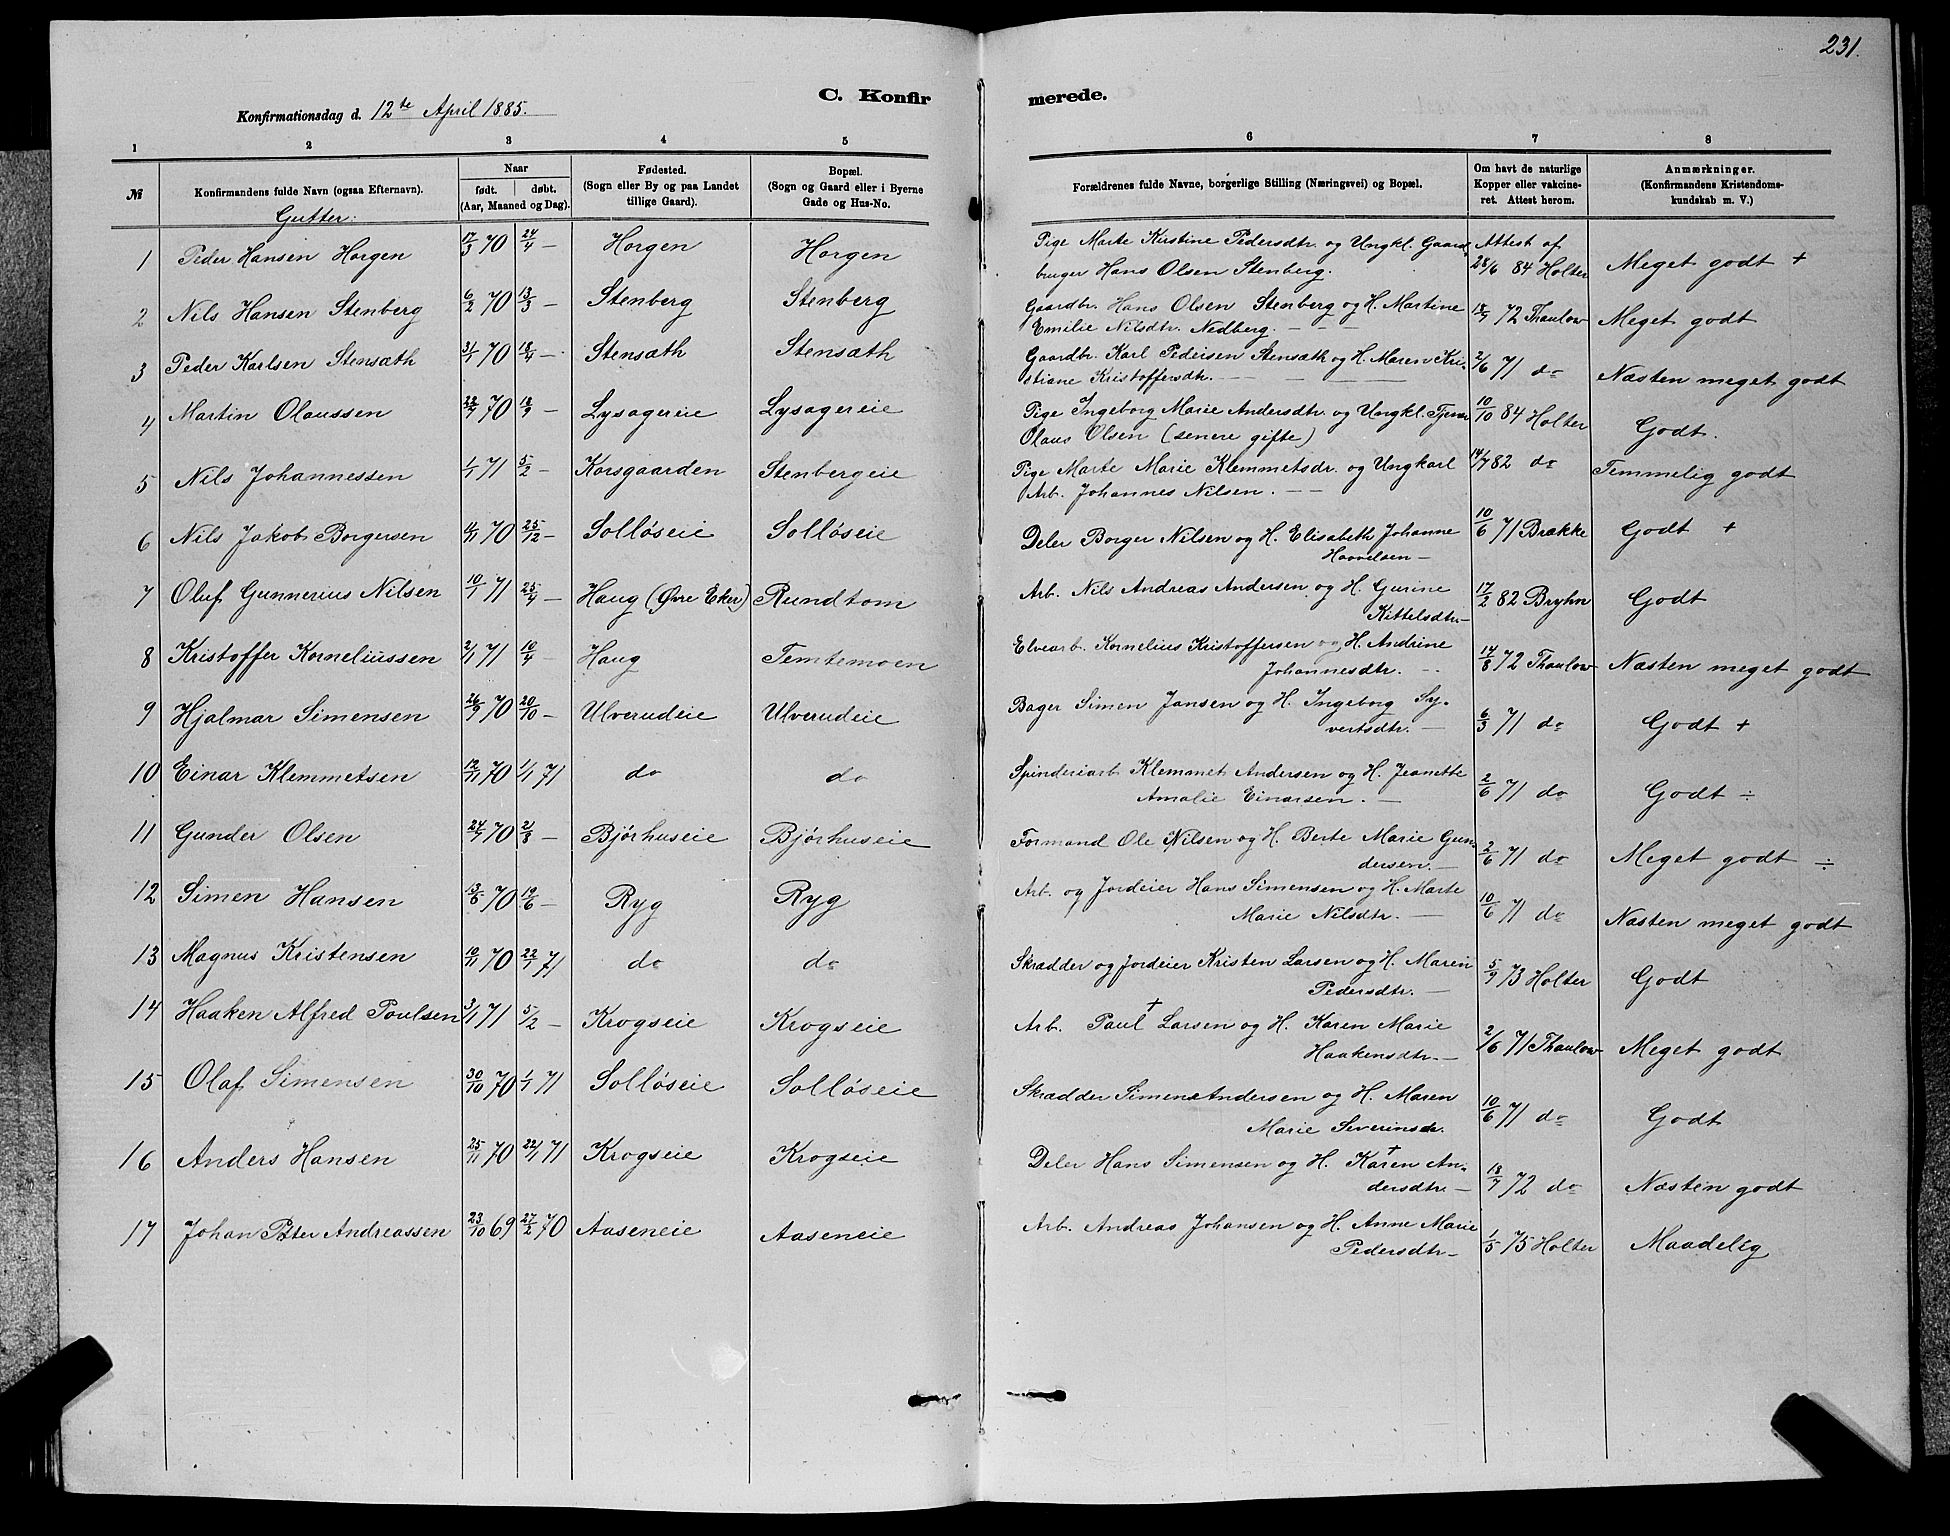 231.
C. Konfirmerede.
Konfirmationsdag d. 12te April 1885.
1 2 3 4 5 6 7 8
№ Konfirmandens fulde Navn (ogsaa Efternavn). Naar født. døbt. (Aar, Maaned og Dag). Fødested. (Sogn eller By og paa Landet tillige Gaard). Bopæl. (Sogn og Gaard eller i Byerne Gade og Hus-No. Forældrenes fulde Navne, borgerlige Stilling (Næringsvei) og Bopæl. Om havt de naturlige Kopper eller vakcineret. Attest herom. Anmærkninger. (Konfirmandens Kristendomskundskab m. V.)
Gutter:
1 Peder Hansen Horgen 17/3 70 24/4 Horgen Horgen Pige Marte Kirstine Pedersdtr. og Ungkl. Gaard- Attest af
bruger Hans Olsen Stenberg. 28/6 84 Holter Meget godt +
2 Nils Hansen Stenberg 6/2 70 13/3 — Stenberg Stenberg Gaardbr. Hans Olsen Stenberg og H. Martine
Emilie Nilsdtr. Nedberg. — 18/7 72 Thaulow Meget godt
3 Peder Karlsen Stensæth 31/1 70 18/4 — Stensæth Stensæth Gaardbr. Karl Pedersen Stensæth og H. Maren Kri-
stiane Kristoffersdtr. — 2/6 71 do Næsten meget godt
4 Martin Olaussen 70 18/9 — Lysagereie Lysagereie Pige Ingeborg Marie Andersdtr. og Ungkl. Tjener
Olaus Olsen (senere gifte) 10/10 84 Holter Godt.
5 Nils Johannessen 1/1 71 5/2 — Korsgaarden Stenbergeie Pige Marte Marie Klemmetsdr. og Ungkarl
Arb. Johannes Nilsen. — 14/7 82 do Temmelig godt
6 Nils Jakob Borgersen 70 25/12 — Solløseie Solløseie Deler Borger Nilsen og H. Elisabeth Johanne
Haavelsen — 10/6 71 Brække Godt +
7 Oluf Gunnerius Nilsen 10/1 71 25/4 — Haug (Øvre Eker) Rundtom Arb. Nils Andreas Andersen og H. Gurine
Kittelsdtr — 17/2 82 Bryhn Godt
8 Kristoffer Korneliussen 2/1 71 10/4 — Haug Temtemoen Elvearb. Kornelius Kristoffersen og H. Andrine
Johannesdtr. — 14/8 72 Thaulow Næsten meget godt
9 Hjalmar Simensen 26/9 70 20/10 — Ulverudeie Ulverudeie Bager Simen Jansen og H. Ingeborg Sy-
vertsdtr. — 6/3 71 do Godt +
10 Einar Klemmetsen 12/11 70 1/1 71 do do Spinderiarb. Klemmet Andersen og H. Jeanette
Amalie Einarsen. — 2/6 71 do Godt ÷
11 Gunder Olsen 24/7 70 21/8 — Bjørhuseie Bjørhuseie Formand Ole Nilsen og H. Berte Marie Gun-
dersen. — 2/6 71 do Meget godt ÷
12 Simen Hansen 70 19/6 — Ryg Ryg Arb. og Jordeier Hans Simensen og H. Marte
Marie Nilsdtr. — 10/6 71 do Næsten meget godt
13 Magnus Kristensen 10/11 70 22/1 71 do do Skrædder og Jordeier Kristen Larsen og H. Maren
Pedersdtr. — 5/9 73 Holter Godt
14 Haaken Alfred Poulsen 3/1 71 5/2 — Krogseie Krogseie Arb. Paul † Larsen og H. Karen Marie
Haakensdtr. — 2/6 71 Thaulow Meget godt
15 Olaf Simensen 30/10 70 1/1 71 Solløseie Solløseie Skrædder Simen Andersen og H. Maren
Marie Severinsdr. 10/6 71 do Godt
16 Anders Hansen 25/11 70 22/1 71 Krogseie Krogseie Deler Hans Simensen og H. Karen † An-
dersdtr. — 18/7 72 do Næsten godt
17 Johan Peter Andreassen 23/10 69 27/2 70 Aaseneie Aaseneie Arb. Andreas Johansen og H. Anne Marie
Pedersdtr — 1/5 75 Holter Maadelig